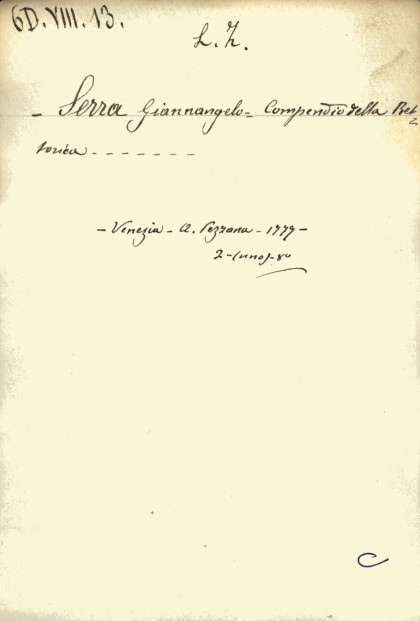 6D.VIII.13.
L. Z.
- Serra Giannangelo = Compendio della Ret=
torica - - - - - - -
- Venezia - A. Pezzana - 1777 -
2 - (uno) - 8º
C